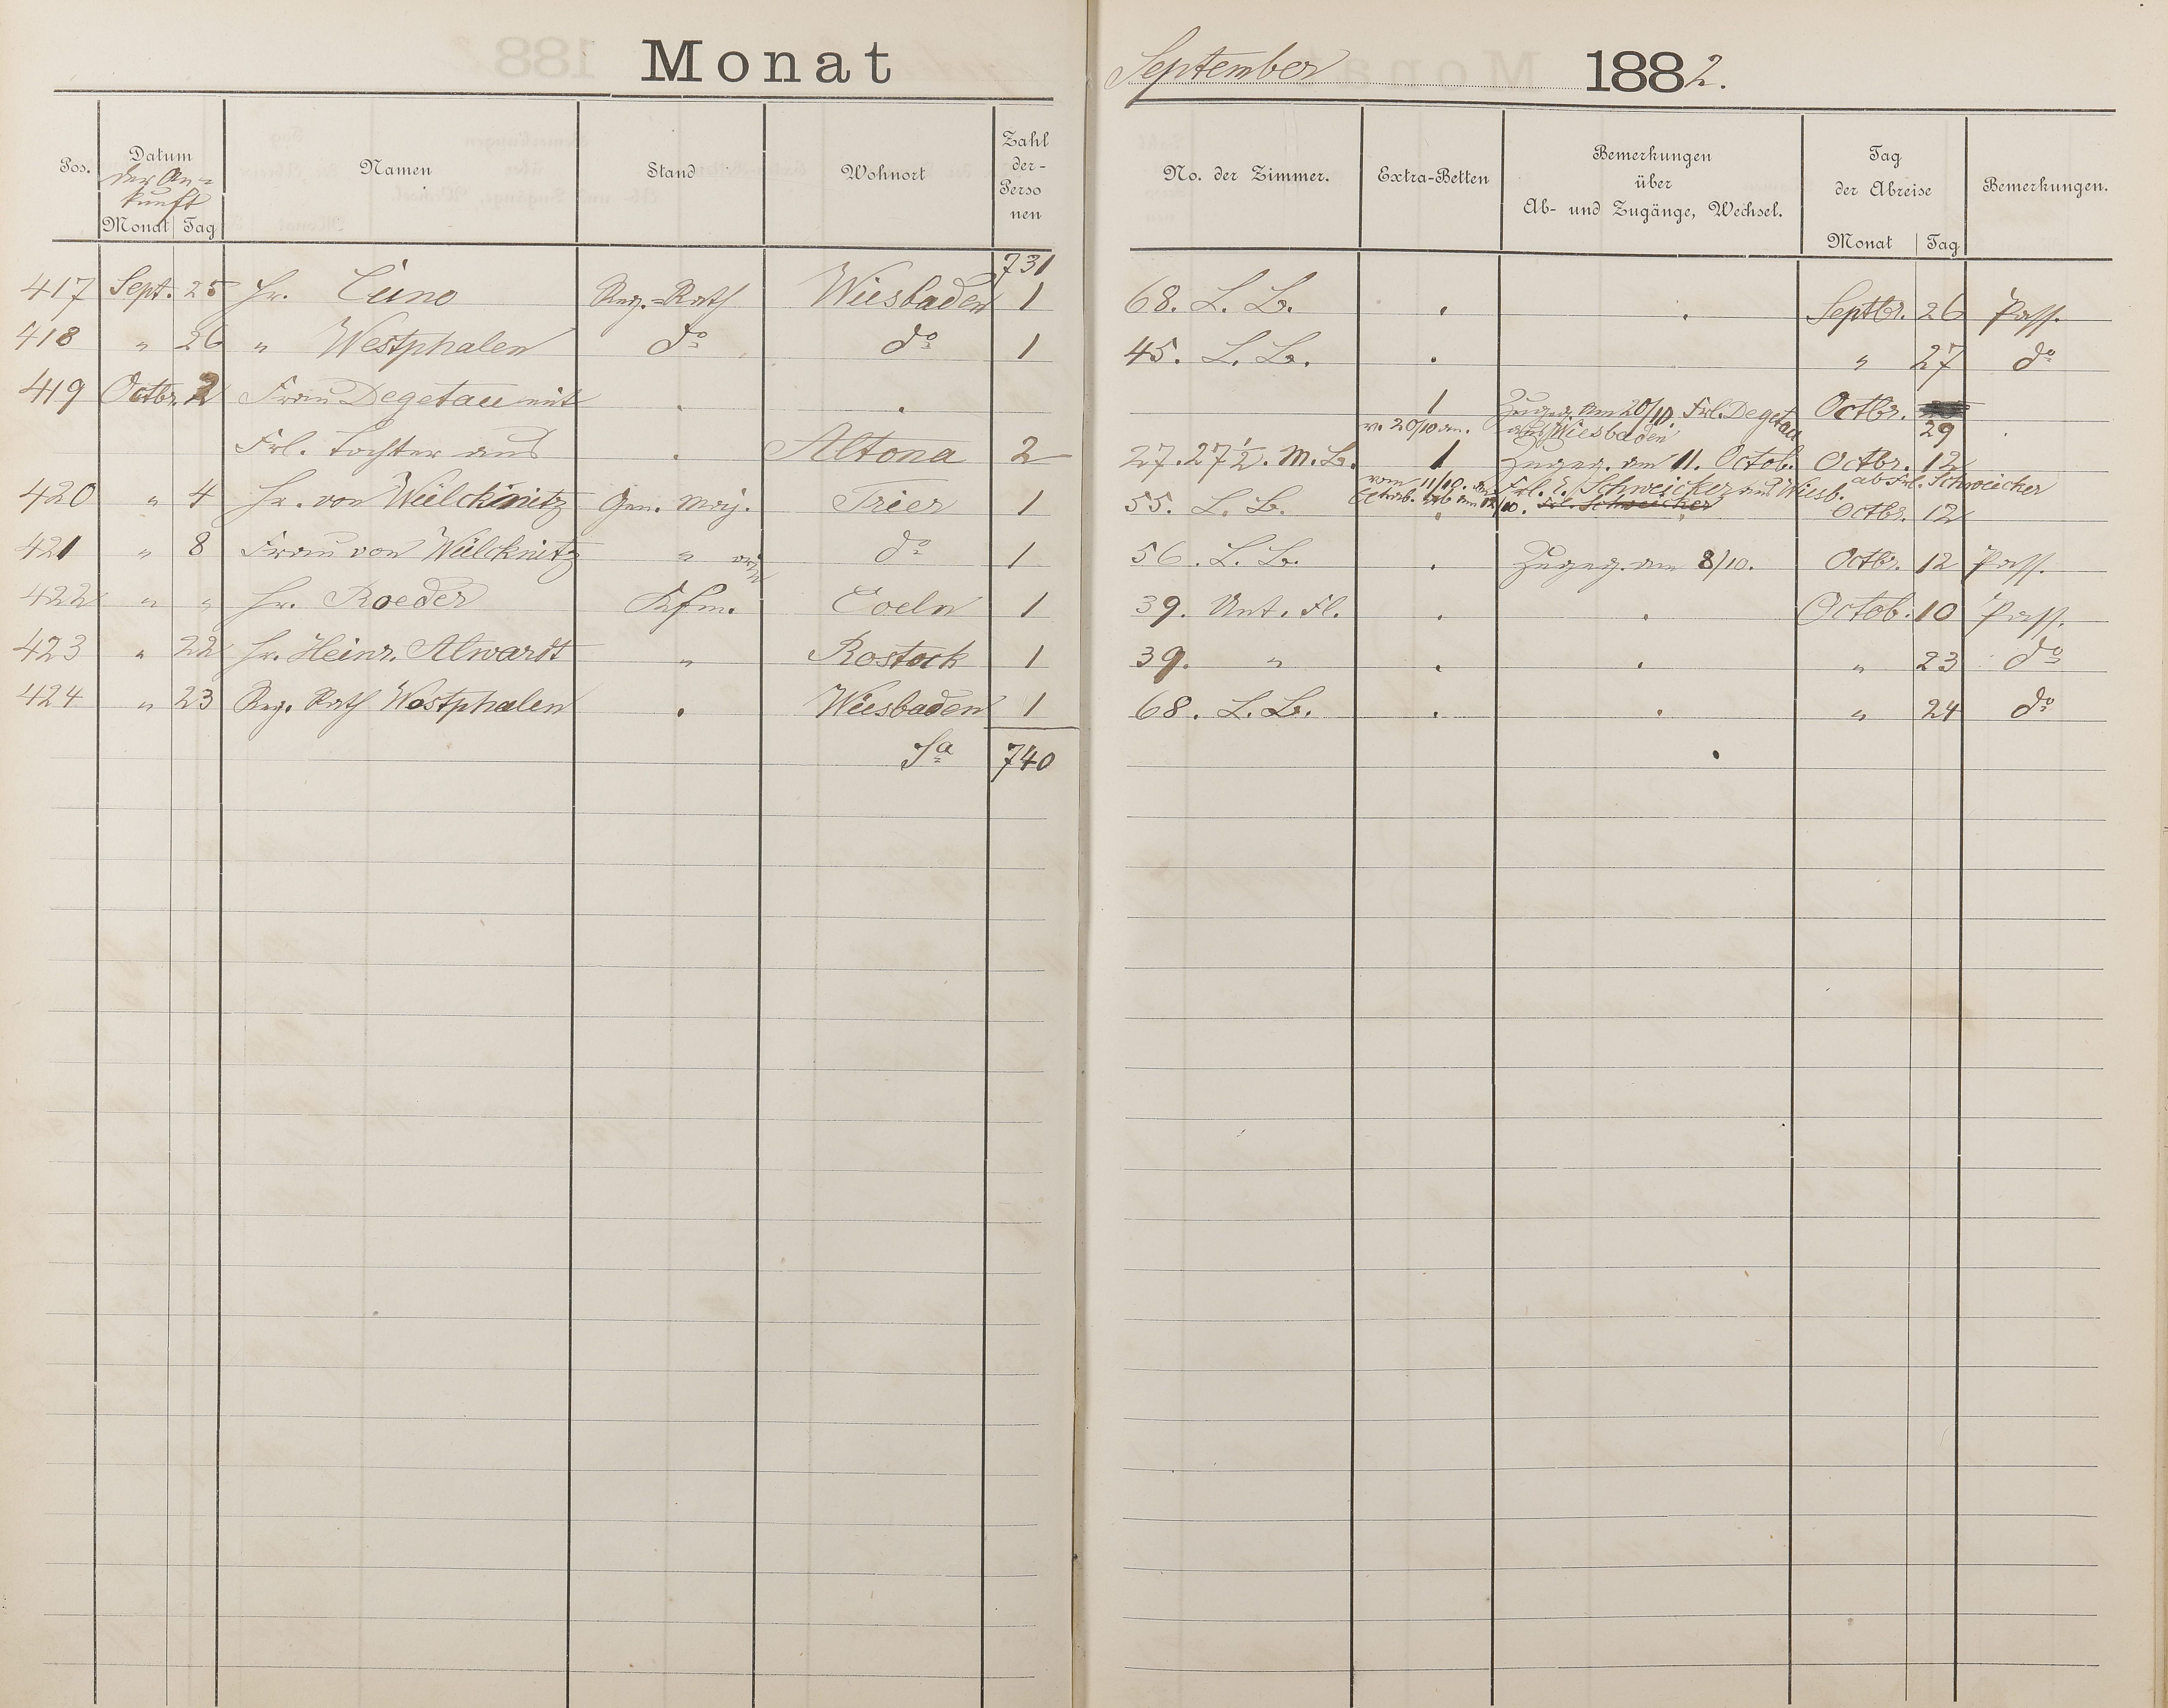 Monat September 1882.
Pos. Datum der An=kunft Monat Tag Namen Stand Wohnort Zahl der-Perso nen No. der Zimmer. Extra-Betten Bemerkungen über Ab- und Zugänge, Wechsel. Tag der Abreise Monat Tag Bemerkungen.
731
417 Sept. 25 Hr. Cuno Reg.=Rath Wiesbaden 1 68. L. B. . . Septbr. 26 Pass.
418 " 26 " Westphalen do do 1 45. L. B. . " 27 do
419 Octbr. 2 Frau Degetau mit . . 1 Zugeg. am 20/10. Frl. Degetau Octbr. 29
v. 20/10 an. aus Wiesbaden .
Frl. Tochter aus . Altona 2 27. 27 1/2. M. B. 1 Zugeg. am 11. Octob. Octbr. 12
vom 11/10. an Frl. E. Schweicker aus Wiesb. ab Frl. Schweicker
420 " 4 Hr. von Wülcknitz Gen. Maj. Trier 1 55. L. B. ab am 12/10. Frl. Schweicker Octbr. 12
421 " 8 Frau von Wülcknitz " do 1 56. L. B. . Zugeg. am 8/10. Octbr. 12 Pass.
422 " " Hr. Roeder Kfm. Coeln 1 39. Unt. Fl. . . Octob. 10 Pass.
423 " 22 Hr. Heinr. Alwardt " Rostock 1 39. " . . " 23 do
424 " 23 Reg. Rath Westphalen . Wiesbaden 1 68. L. B. . . " 24 do
Sa 740